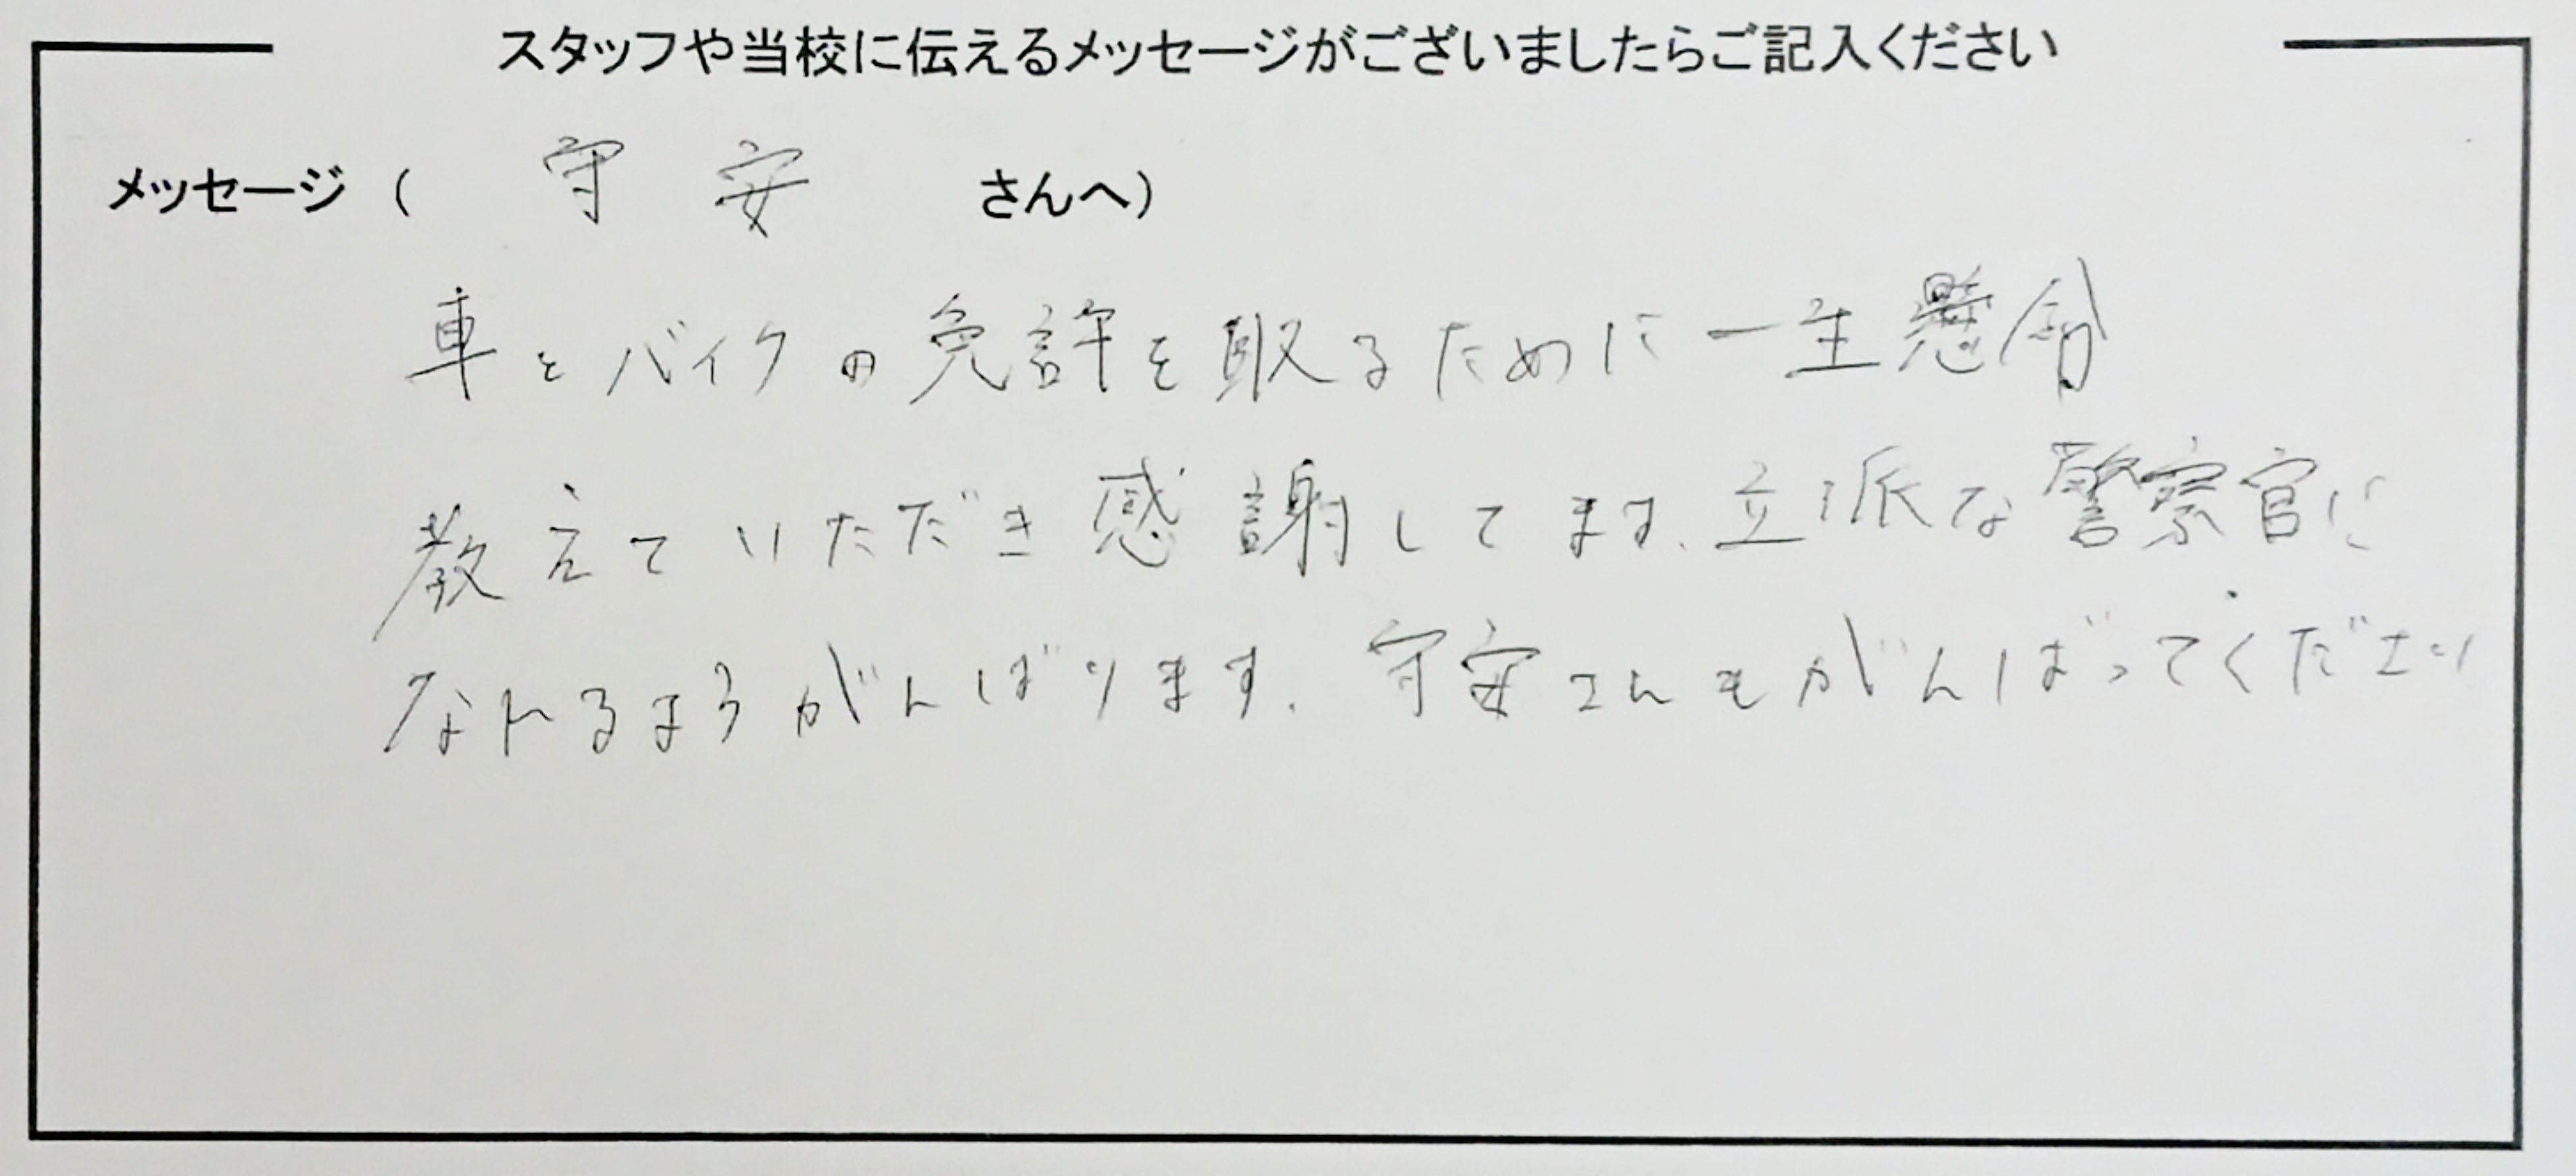 スタッフや当校に伝えるメッセージがございましたらご記入ください
メッセージ ( 守安 さんへ)
車とバイクの免許を取るために一生懸命
教えていただき感謝してます。立派な警察官に
なれるようがんばります。守安さんもがんばってください